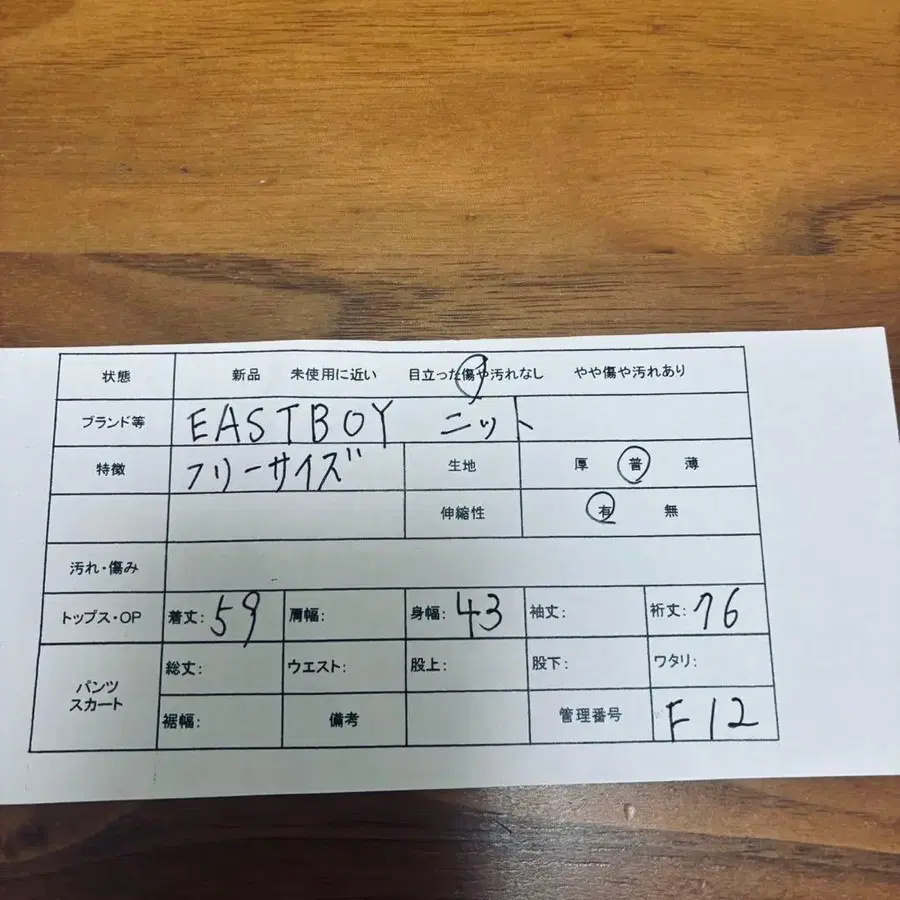 状態 新品 未使用に近い 目立った傷や汚れなし やや傷や汚れあり
ブランド等 EASTBOY ニット
特徴 フリーサイズ 生地 厚 普 薄
伸縮性 有 無
汚れ・傷み
トップス・OP 着丈: 59 肩幅: 身幅: 43 袖丈: 裄丈: 76
パンツ スカート 総丈: ウエスト: 股上: 股下: ワタリ:
裾幅: 備考 管理番号 F12